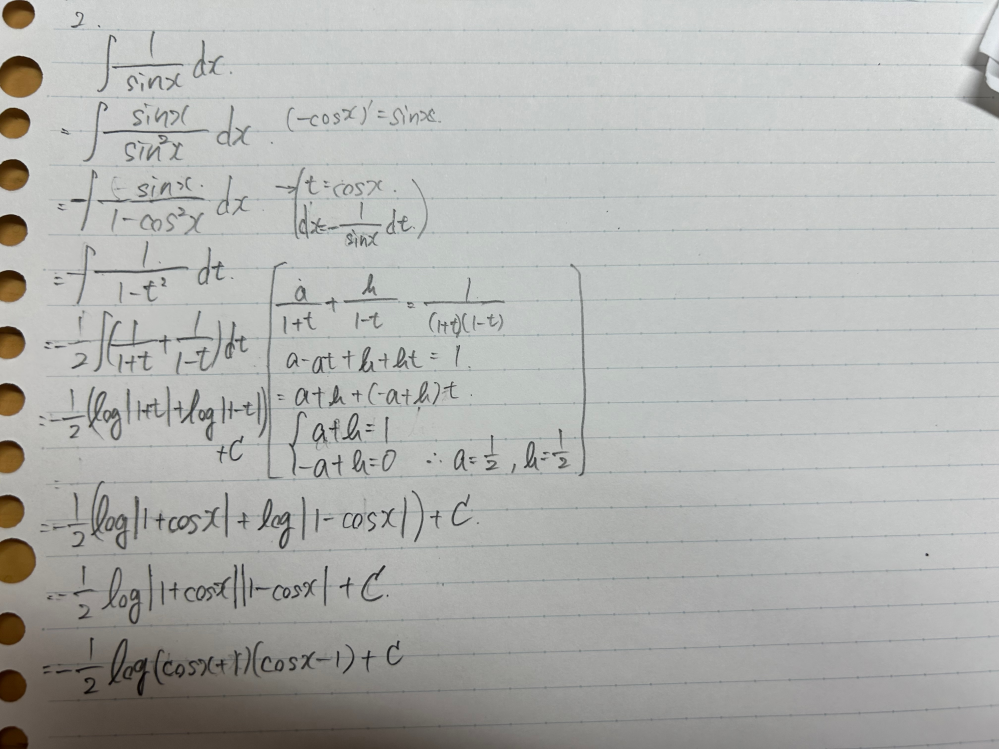 2.
∫ 1/sinx dx.
= ∫ sinx/sin²x dx. (-cosx)' = sinx.
= -∫ (-sinx)/(1-cos²x) dx → (t = cosx.
dx = -1/sinx dt.)
= -∫ 1/(1-t²) dt.
= -1/2 ∫(1/(1+t) + 1/(1-t))dt
= -1/2 (log|1+t| + log|1-t|)
+C
[a/(1+t) + b/(1-t) = 1/((1+t)(1-t))
a-at+b+bt = 1.
= a+b+(-a+b)t.
{a+b=1
-a+b=0 ∴ a=1/2, b=1/2]
= -1/2 (log|1+cosx| + log|1-cosx|) + C.
= -1/2 log|1+cosx||1-cosx| + C.
= -1/2 log(cosx+1)(cosx-1) + C